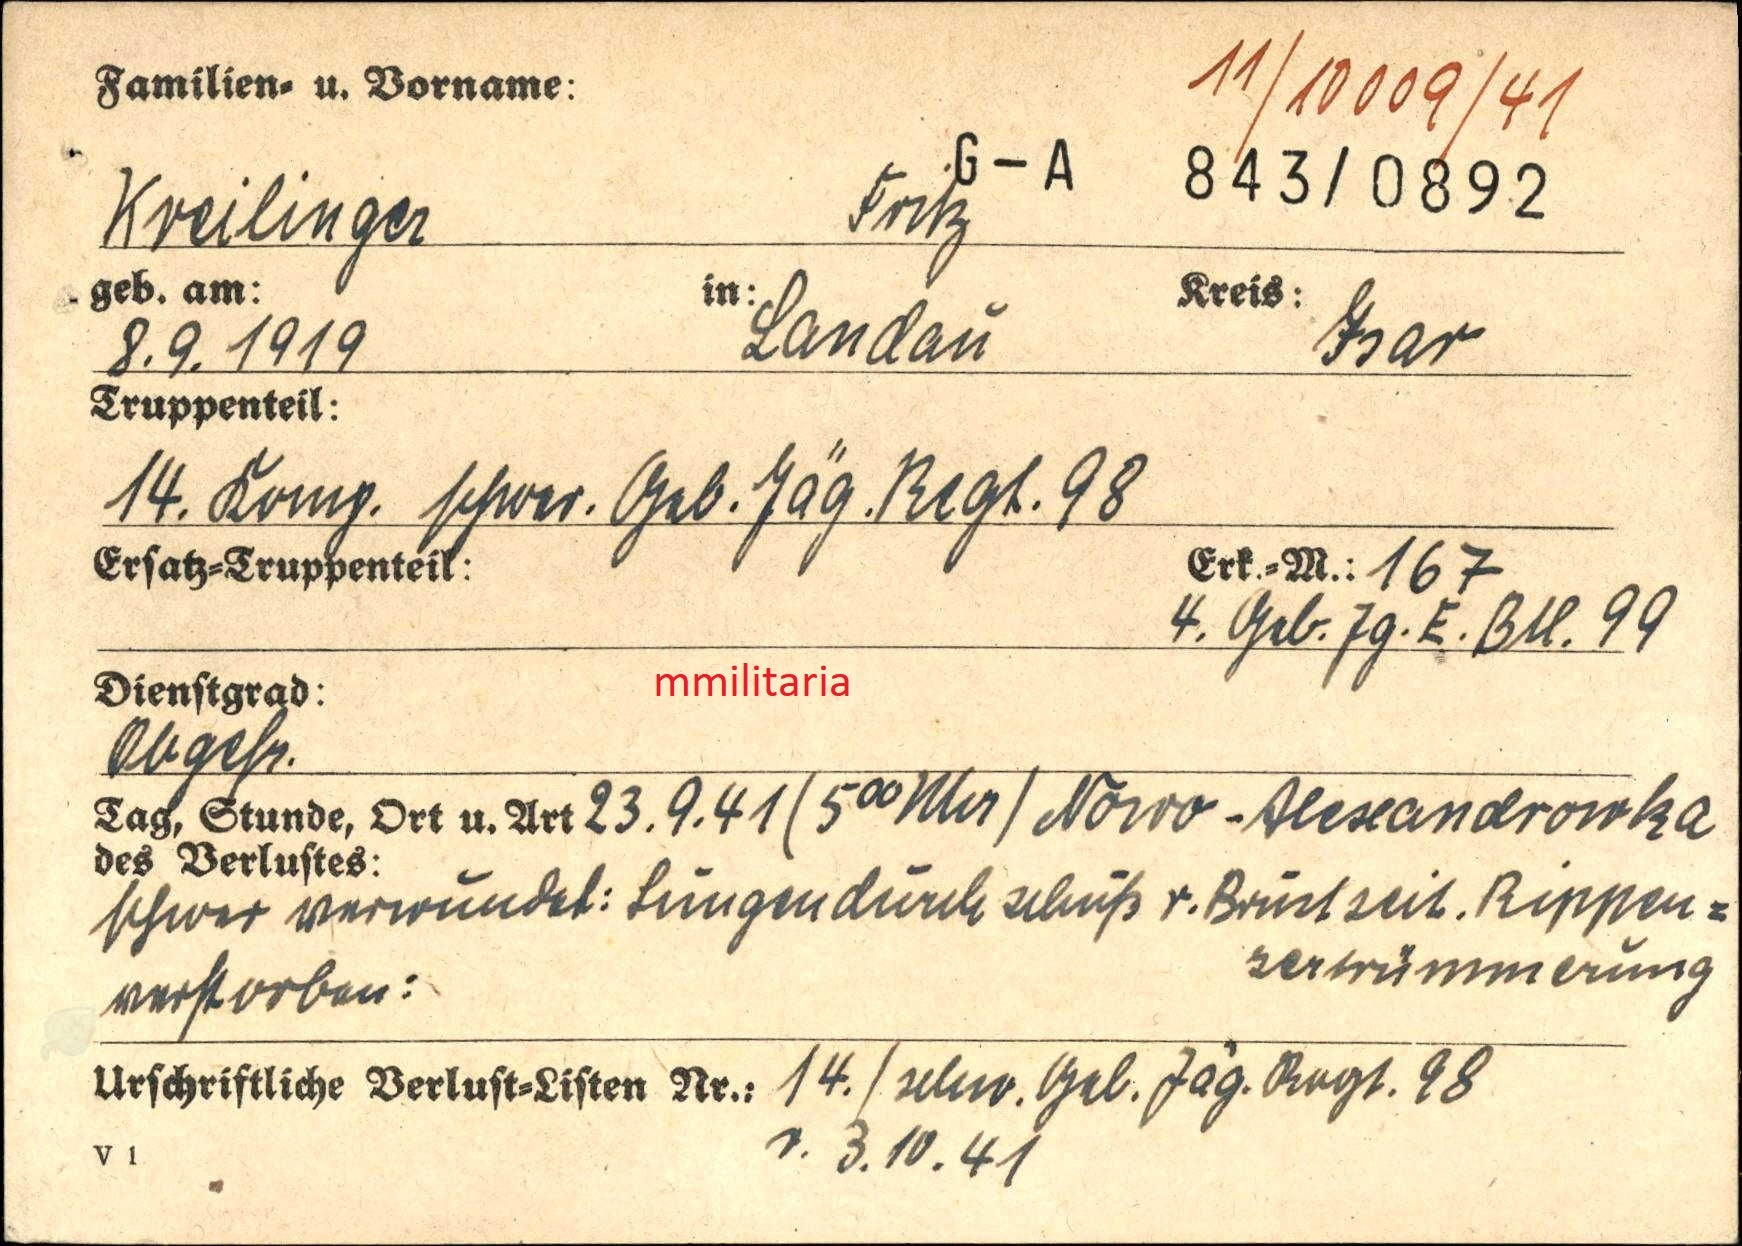 Familien- u. Vorname:
11/10009/41
G-A 843/0892
Kreilinger Fritz
geb. am: in: Kreis:
8.9.1919 Landau Isar
Truppenteil:
14. Komp. schwer. Geb. Jäg. Regt. 98
Ersatz-Truppenteil: Erk.-M.: 167
4. Geb. Jg. E. Btl. 99
Dienstgrad:
mmilitaria
Obgefr.
Tag, Stunde, Ort u. Art 23.9.41 (5⁰⁰ Uhr) Nowo-Alexandrowka
des Verlustes:
schwer verwundet: Lungendurchschuß r. Brustseit. Rippen=
zertrümmerung
verstorben:
Urschriftliche Verlust-Listen Nr.: 14./schw. Geb. Jäg. Regt. 98
v. 3.10.41
V 1